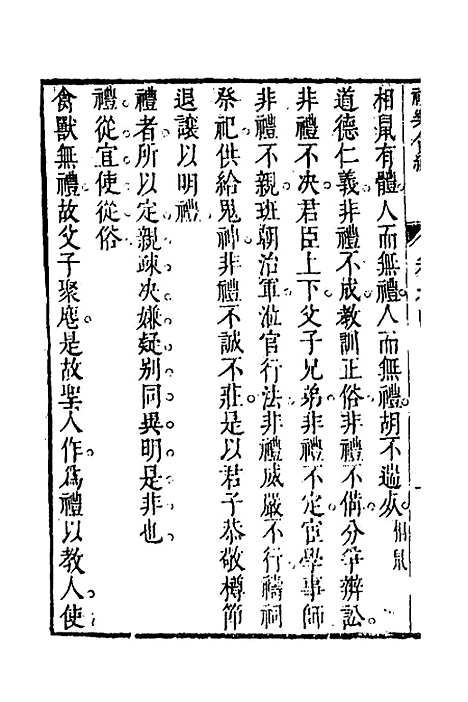 相鼠有體人而無禮人而無禮胡不遄死相鼠
道德仁義非禮不成教訓正俗非禮不備分爭辨訟
非禮不决君臣上下父子兄弟非禮不定宦學事師
非禮不親班朝治軍涖官行法非禮威嚴不行禱祠
祭祀供給鬼神非禮不誠不莊是以君子恭敬樽節
退讓以明禮
禮者所以定親疎决嫌疑别同異明是非也
禮從宜使從俗
禽獸無禮故父子聚麀是故聖人作爲禮以教人使